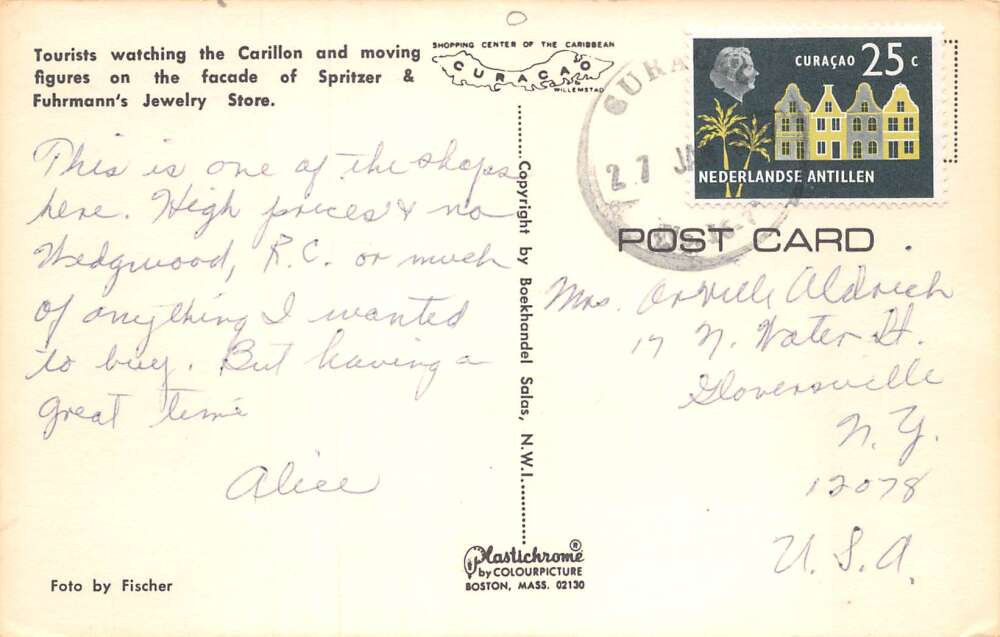 Tourists watching the Carillon and moving
figures on the facade of Spritzer &
Fuhrmann's Jewelry Store.
SHOPPING CENTER OF THE CARIBBEAN
CURAÇAO
WILLEMSTAD
This is one of the shops
here. High prices & no
Wedgwood, R.C. or much
of anything I wanted
to buy. But having a
great time
Alice
Foto by Fischer
Copyright by Boekhandel Salas, N.W.I.
Plastichrome®
by COLOURPICTURE
BOSTON, MASS. 02130
CURAÇAO 25 C
NEDERLANDSE ANTILLEN
27 JA
POST CARD
Mrs. Orville Aldrich
17 N. Water St.
Gloversville
N.Y.
12078
U.S.A.